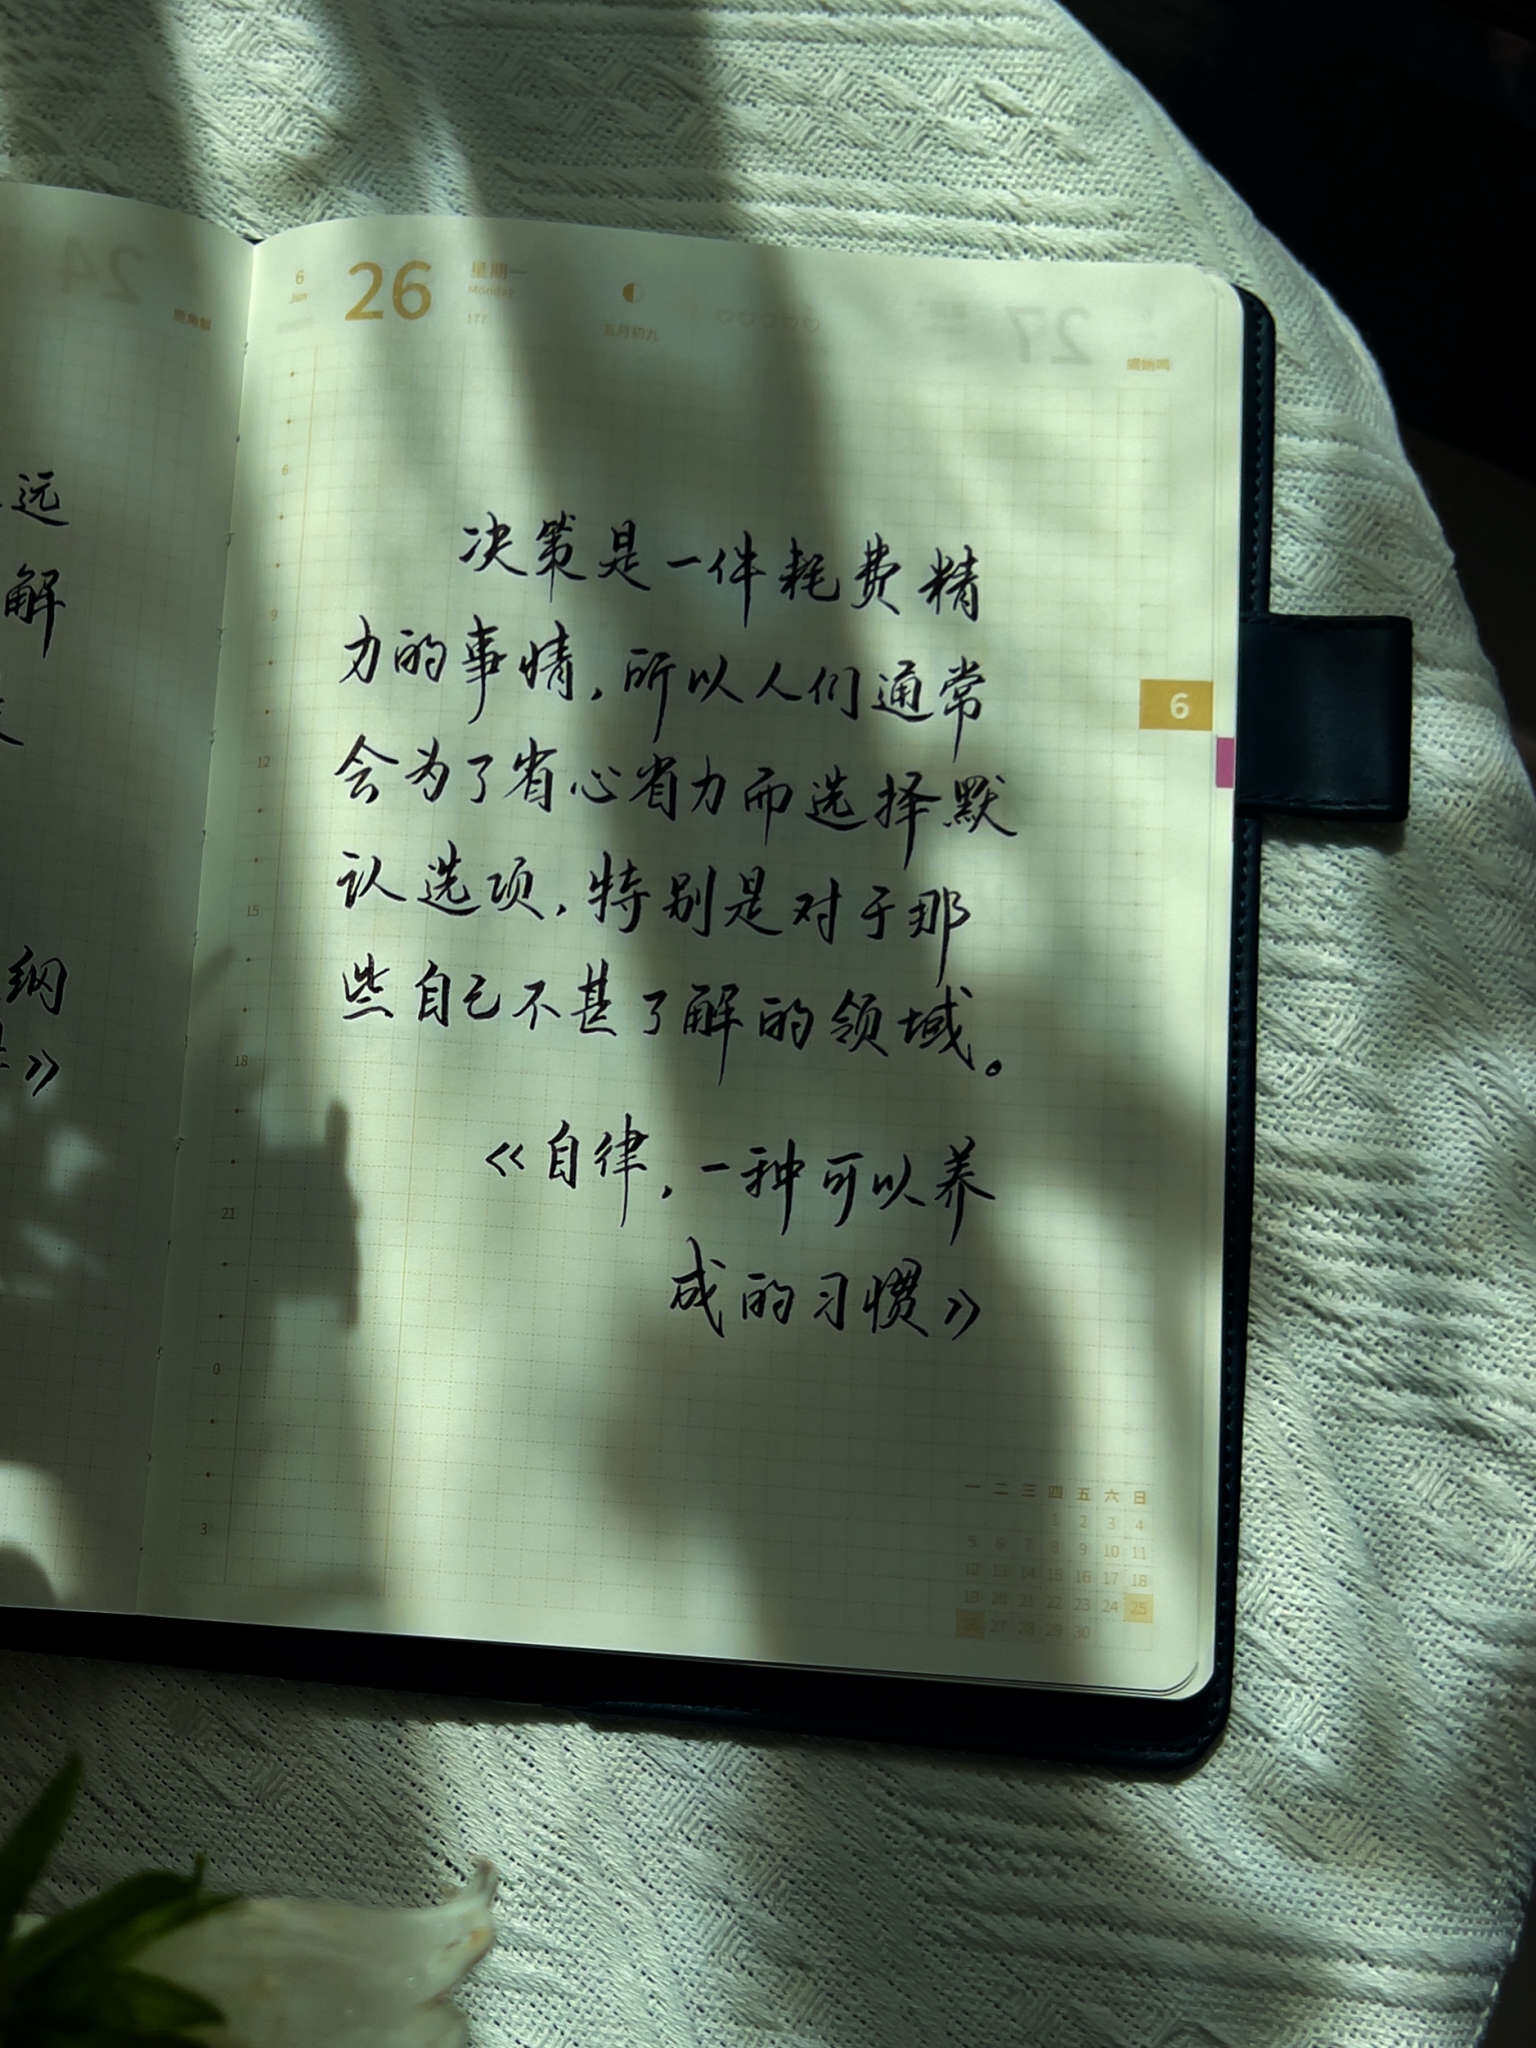 远
解
纲
》
6
Jun
26
星期一
Monday
177
五月初九
27
蜩始鸣
24
鹿角解
决策是一件耗费精
力的事情，所以人们通常
会为了省心省力而选择默
认选项，特别是对于那
些自己不甚了解的领域。
《自律，一种可以养
成的习惯》
6
6
9
12
15
18
21
0
3
一 二 三 四 五 六 日
1 2 3 4
5 6 7 8 9 10 11
12 13 14 15 16 17 18
19 20 21 22 23 24 25
26 27 28 29 30